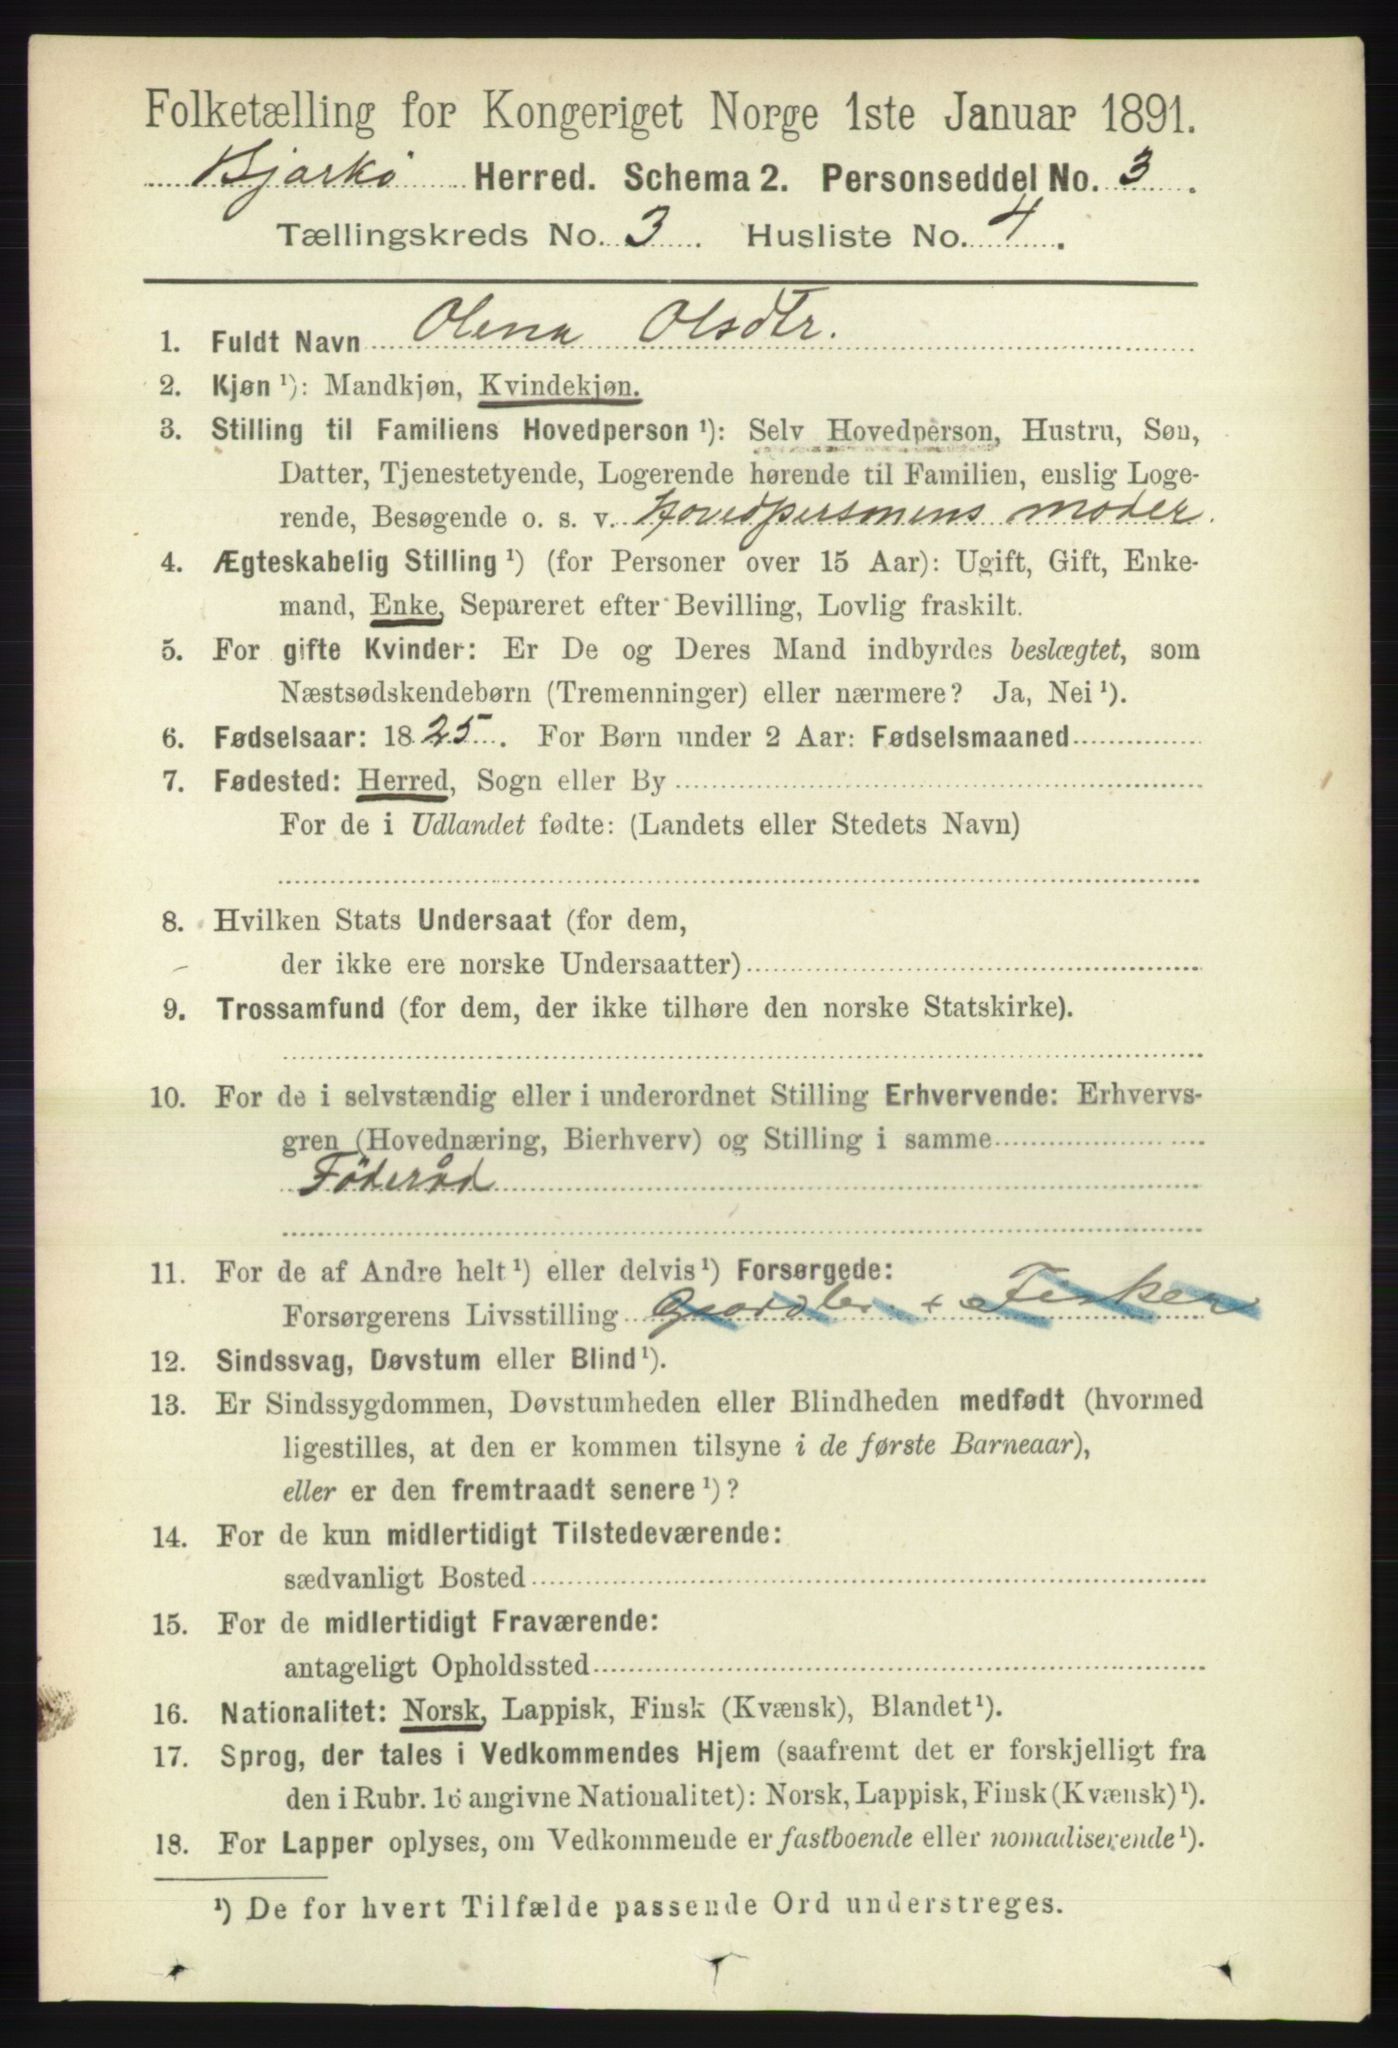 Folketælling for Kongeriget Norge 1ste Januar 1891.
Bjarkö Herred. Schema 2. Personseddel No. 3.
Tællingskreds No. 3. Husliste No. 4.
1. Fuldt Navn Olena Olsdtr.
2. Kjøn ¹): Mandkjøn, Kvindekjøn.
3. Stilling til Familiens Hovedperson ¹): Selv Hovedperson, Hustru, Søn,
Datter, Tjenestetyende, Logerende hørende til Familien, enslig Loge-
rende, Besøgende o. s. v. Hovedpersonens moder.
4. Ægteskabelig Stilling ¹) (for Personer over 15 Aar): Ugift, Gift, Enke-
mand, Enke, Separeret efter Bevilling, Lovlig fraskilt.
5. For gifte Kvinder: Er De og Deres Mand indbyrdes beslægtet, som
Næstsødskendebørn (Tremenninger) eller nærmere? Ja, Nei ¹).
6. Fødselsaar: 1825. For Børn under 2 Aar: Fødselsmaaned
7. Fødested: Herred, Sogn eller By
For de i Udlandet fødte: (Landets eller Stedets Navn)
8. Hvilken Stats Undersaat (for dem,
der ikke ere norske Undersaatter)
9. Trossamfund (for dem, der ikke tilhøre den norske Statskirke).
10. For de i selvstændig eller i underordnet Stilling Erhvervende: Erhvervs-
gren (Hovednæring, Bierhverv) og Stilling i samme
Föderåd
11. For de af Andre helt ¹) eller delvis ¹) Forsørgede:
Forsørgerens Livsstilling Gaardbr. + Fisker
12. Sindssvag, Døvstum eller Blind ¹).
13. Er Sindssygdommen, Døvstumheden eller Blindheden medfødt (hvormed
ligestilles, at den er kommen tilsyne i de første Barneaar),
eller er den fremtraadt senere ¹)?
14. For de kun midlertidigt Tilstedeværende:
sædvanligt Bosted
15. For de midlertidigt Fraværende:
antageligt Opholdssted
16. Nationalitet: Norsk, Lappisk, Finsk (Kvænsk), Blandet ¹).
17. Sprog, der tales i Vedkommendes Hjem (saafremt det er forskjelligt fra
den i Rubr. 16 angivne Nationalitet): Norsk, Lappisk, Finsk (Kvænsk) ¹).
18. For Lapper oplyses, om Vedkommende er fastboende eller nomadiserende ¹).
¹) De for hvert Tilfælde passende Ord understreges.